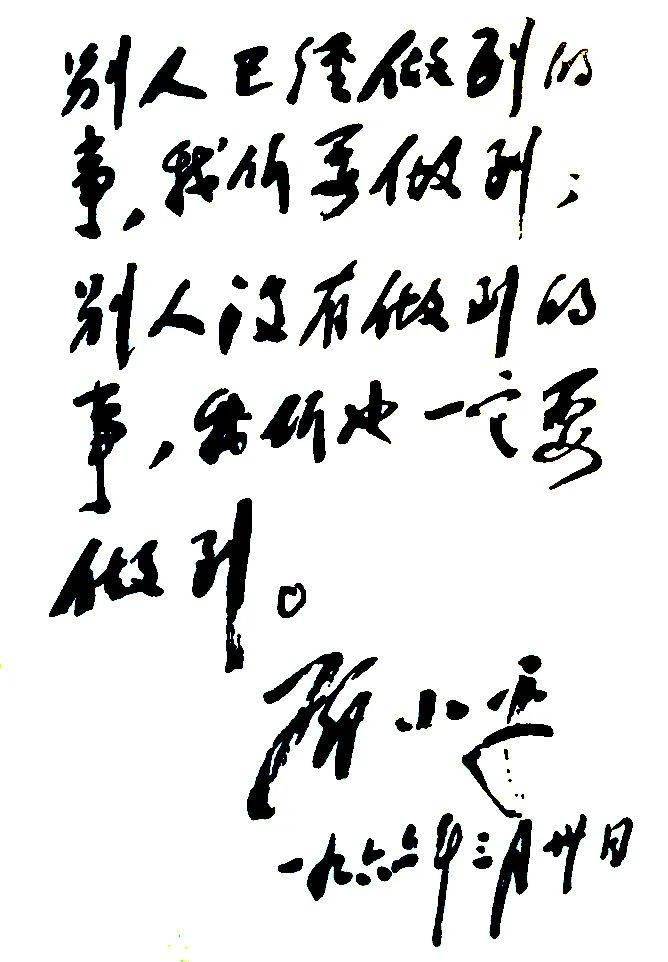 别人已经做到的
事,我们要做到;
别人没有做到的
事,我们也一定要
做到。
邓小平
一九六六年三月卅日